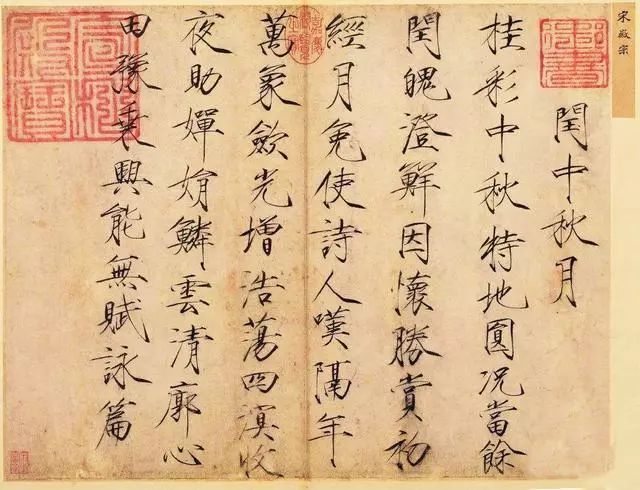 宋徽宗
閏中秋月
桂彩中秋特地圓況當餘
閏魄澄鮮因懷勝賞初
經月免使詩人嘆隔年
萬象歛光增浩蕩四溟收
夜助嬋娟鱗雲清廓心
田豫乗興能無賦詠篇
御書